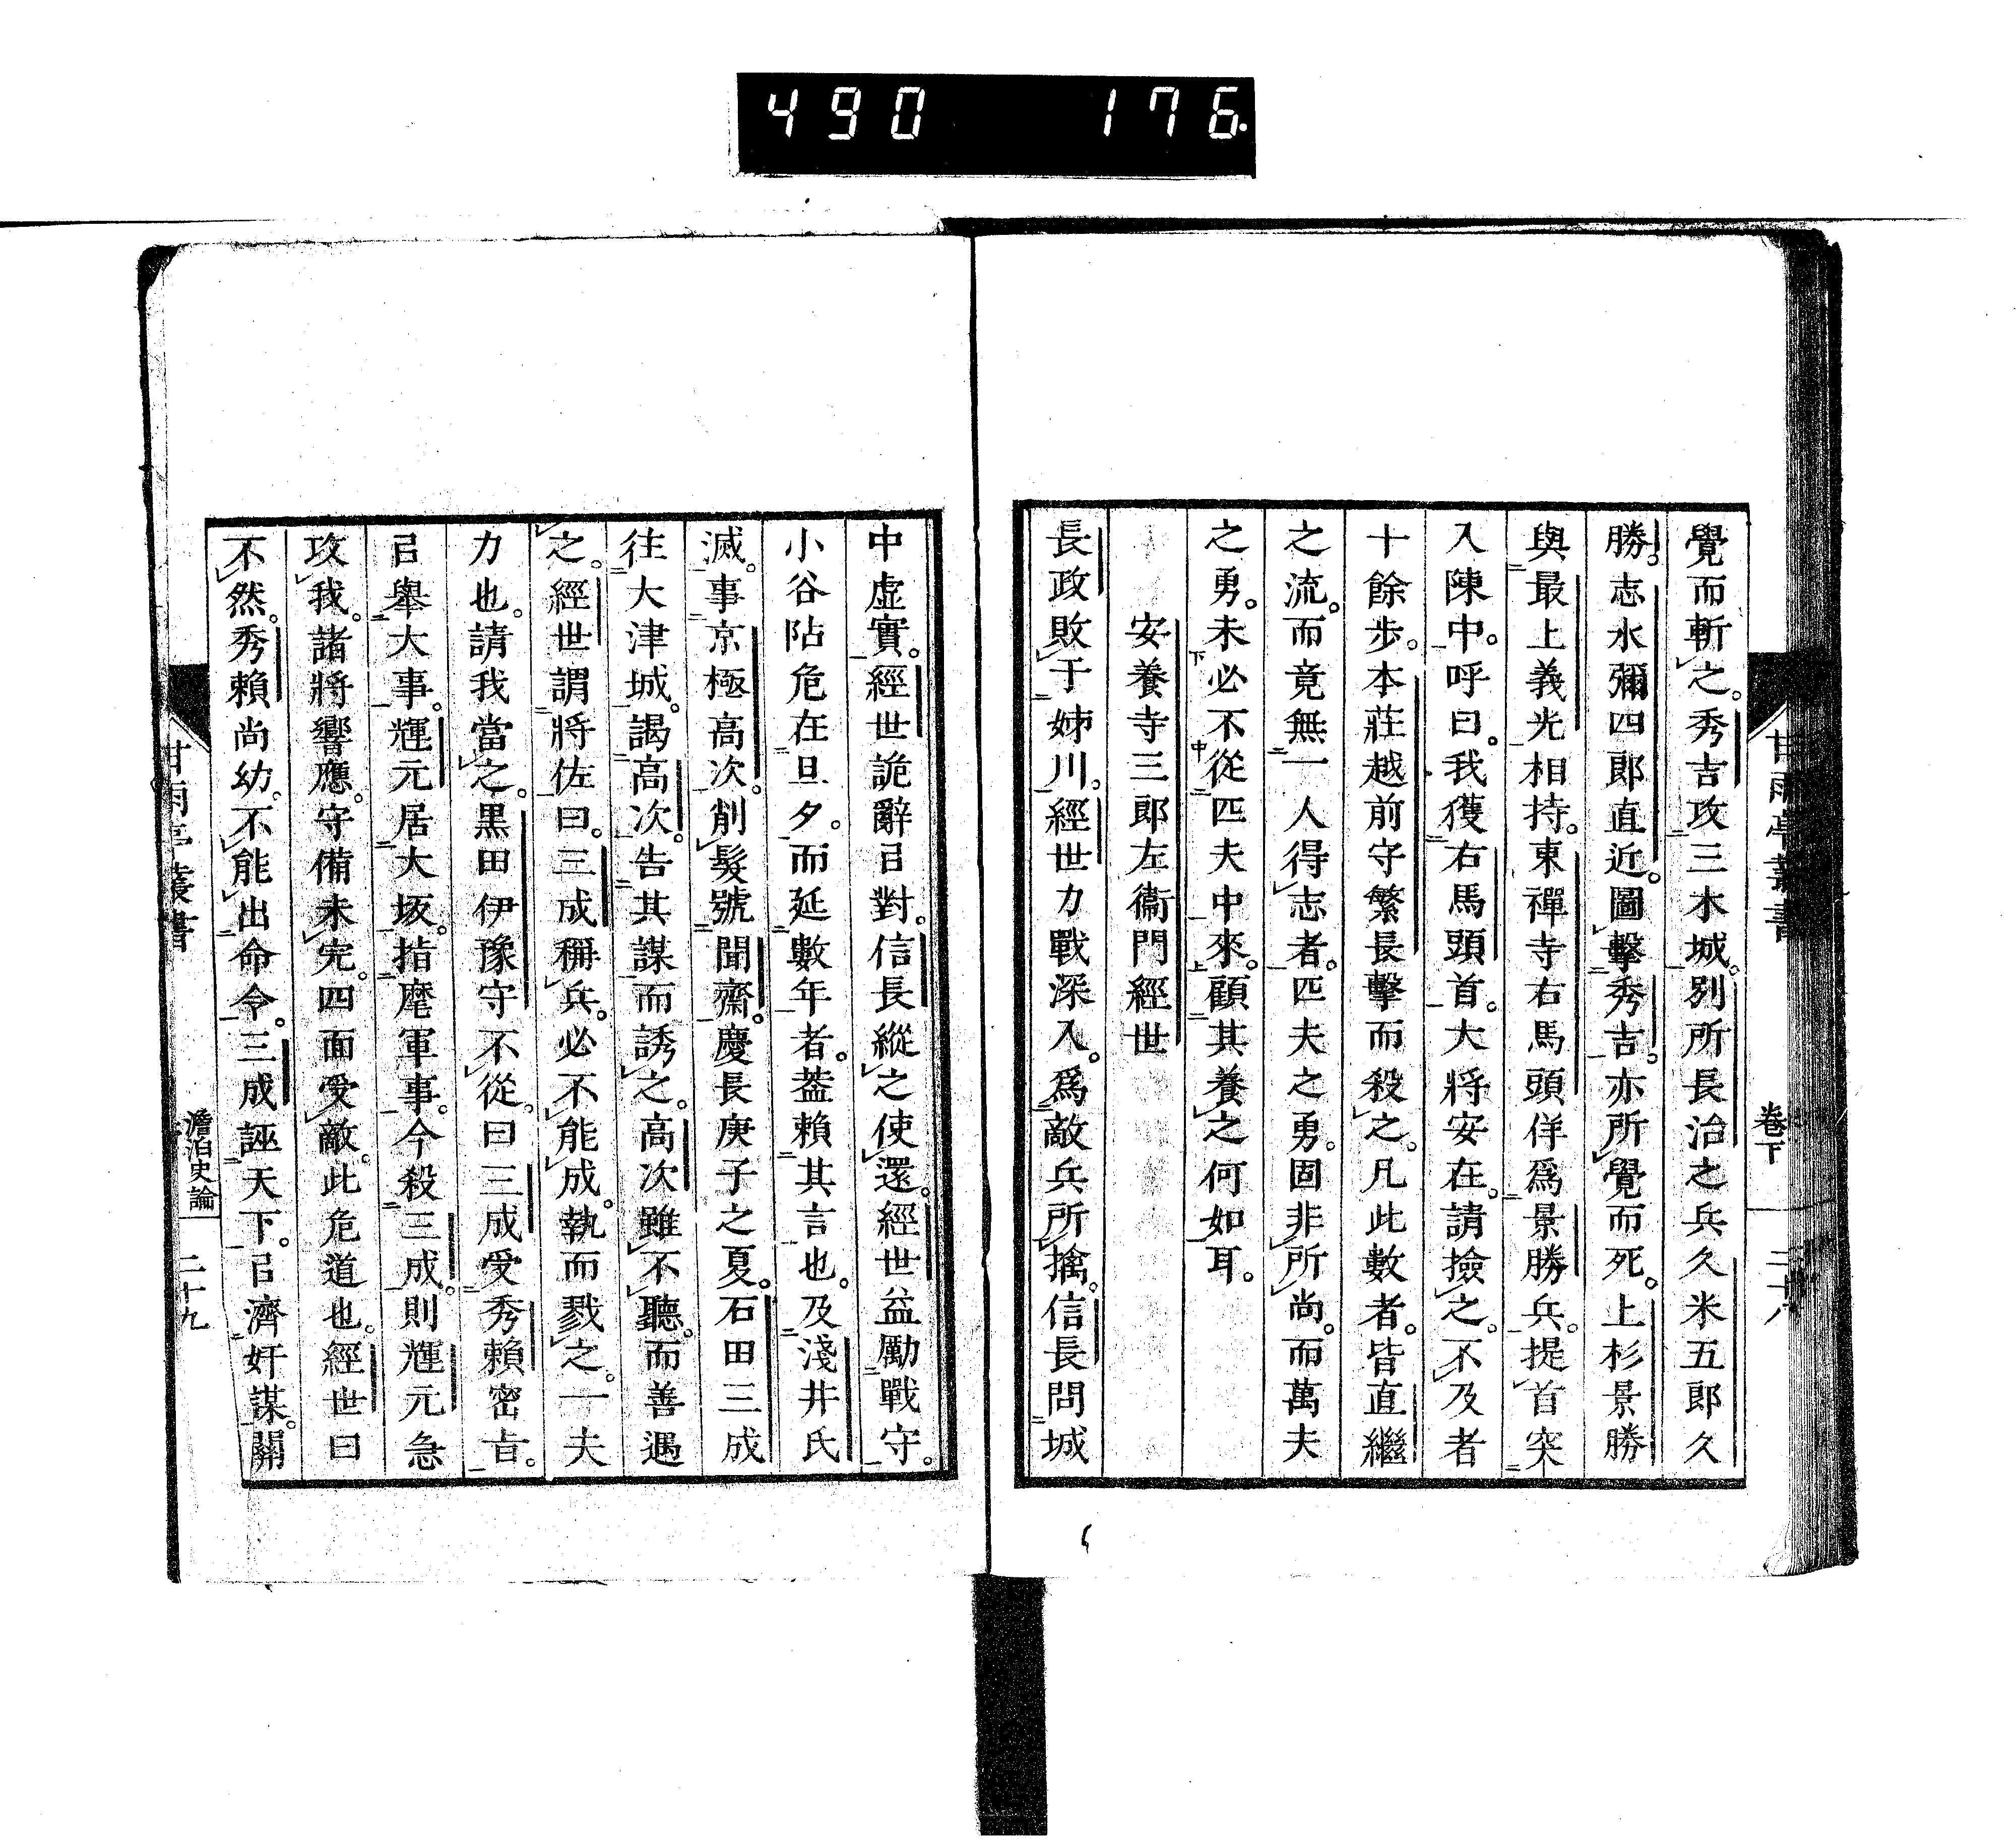 490 176
甘雨亭叢書 卷下
覺而斬之。秀吉攻三木城。別所長治之兵久米五郎久
勝。志水彌四郎直近。圖擊秀吉。亦所覺而死。上杉景勝
與最上義光相持。東禪寺右馬頭佯爲景勝兵。提首突
入陳中。呼曰。我獲右馬頭首。大將安在。請撿之。不及者
十餘步。本莊越前守繁長擊而殺之。凡此數者。皆直繼
之流。而竟無一人得志者。匹夫之勇。固非所尚。而萬夫
之勇。未必不從匹夫中來。顧其養之何如耳。
安養寺三郎左衞門經世
長政敗于姊川。經世力戰深入。爲敵兵所擒。信長問城
中虛實。經世詭辭㠯對。信長縱之使還。經世益勵戰守。
小谷阽危在旦夕。而延數年者。葢賴其言也。及淺井氏
滅。事京極高次。削髮號聞齋。慶長庚子之夏。石田三成
往大津城。謁高次。告其謀而誘之。高次雖不聽。而善遇
之。經世謂將佐曰。三成稱兵。必不能成。執而戮之。一夫
力也。請我當之。黑田伊豫守不從。曰三成受秀賴密旨。
㠯舉大事。輝元居大坂。指麾軍事。今殺三成。則輝元急
攻我。諸將響應。守備未完。四面受敵。此危道也。經世曰
不然。秀賴尚幼。不能出命令。三成誣天下。㠯濟奸謀。關
甘雨亭叢書 澹泊史論 二十九